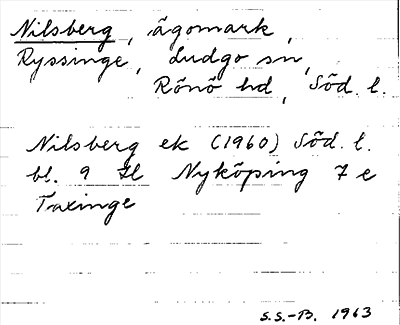 Nilsberg, ägomark,
Ryssinge, Ludgo sn,
Rönö hd, Söd. l.
Nilsberg ek (1960) Söd. l.
bl. 9 Nyköping 7 e
Taxinge
S.S.-B. 1963